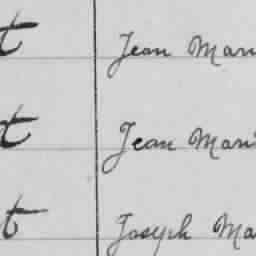 t Jean Mari
t Jean Mari
t Joseph Ma